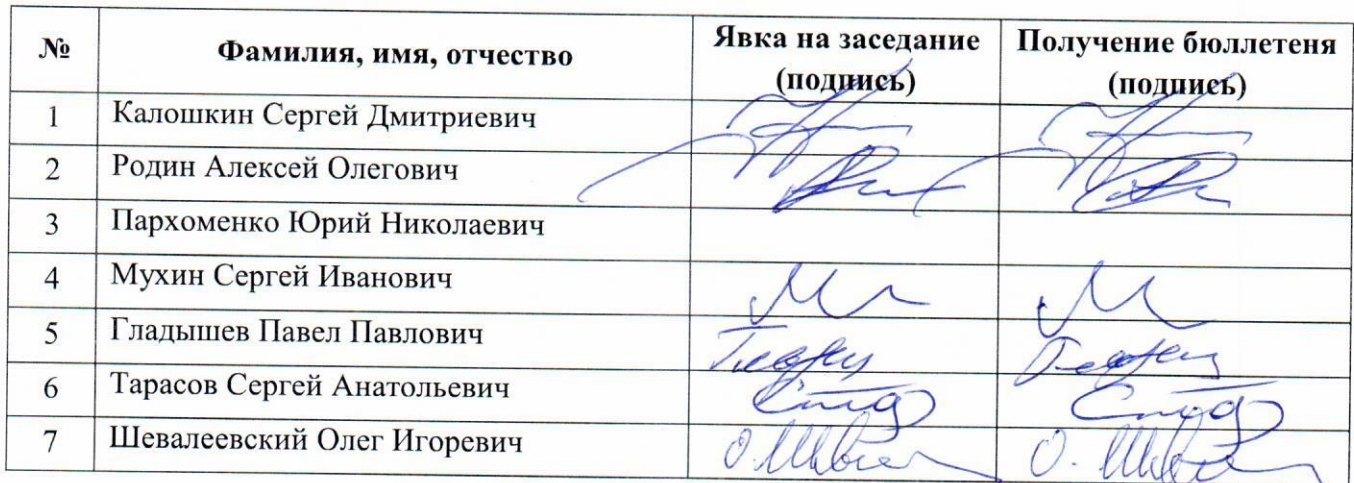 № Фамилия, имя, отчество Явка на заседание (подпись) Получение бюллетеня (подпись)
1 Калошкин Сергей Дмитриевич
2 Родин Алексей Олегович
3 Пархоменко Юрий Николаевич
4 Мухин Сергей Иванович
5 Гладышев Павел Павлович
6 Тарасов Сергей Анатольевич
7 Шевалеевский Олег Игоревич